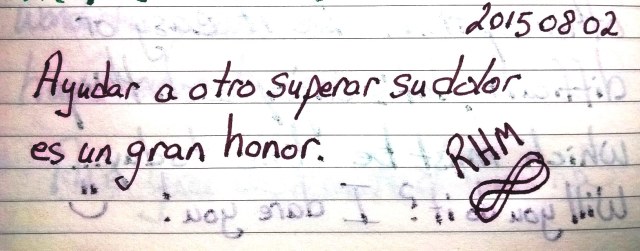 20150802
Ayudar a otro superar su dolor
es un gran honor.
RHM